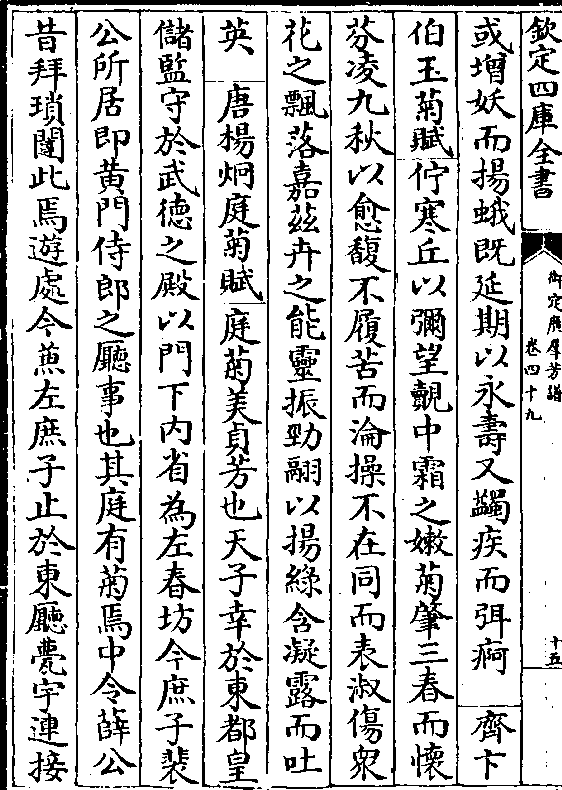 欽定四庫全書
御定廣羣芳譜
卷四十九
十五
或增妖而揚蛾既延期以永壽又蠲疾而弭痾 齊卞
伯玉菊賦 佇寒丘以彌望覿中霜之嫩菊肇三春而懷
芬凌九秋以愈馥不履苦而淪操不在同而表淑傷衆
花之飄落嘉茲卉之能靈振勁翮以揚綠含凝露而吐
英 唐楊炯庭菊賦 庭菊美貞芳也天子幸於東都皇
儲監守於武德之殿以門下內省為左春坊今庶子裴
公所居即黃門侍郎之廳事也其庭有菊焉中令薛公
昔拜瑣闥此焉遊處今兼左庶子止於東廳甍宇連接